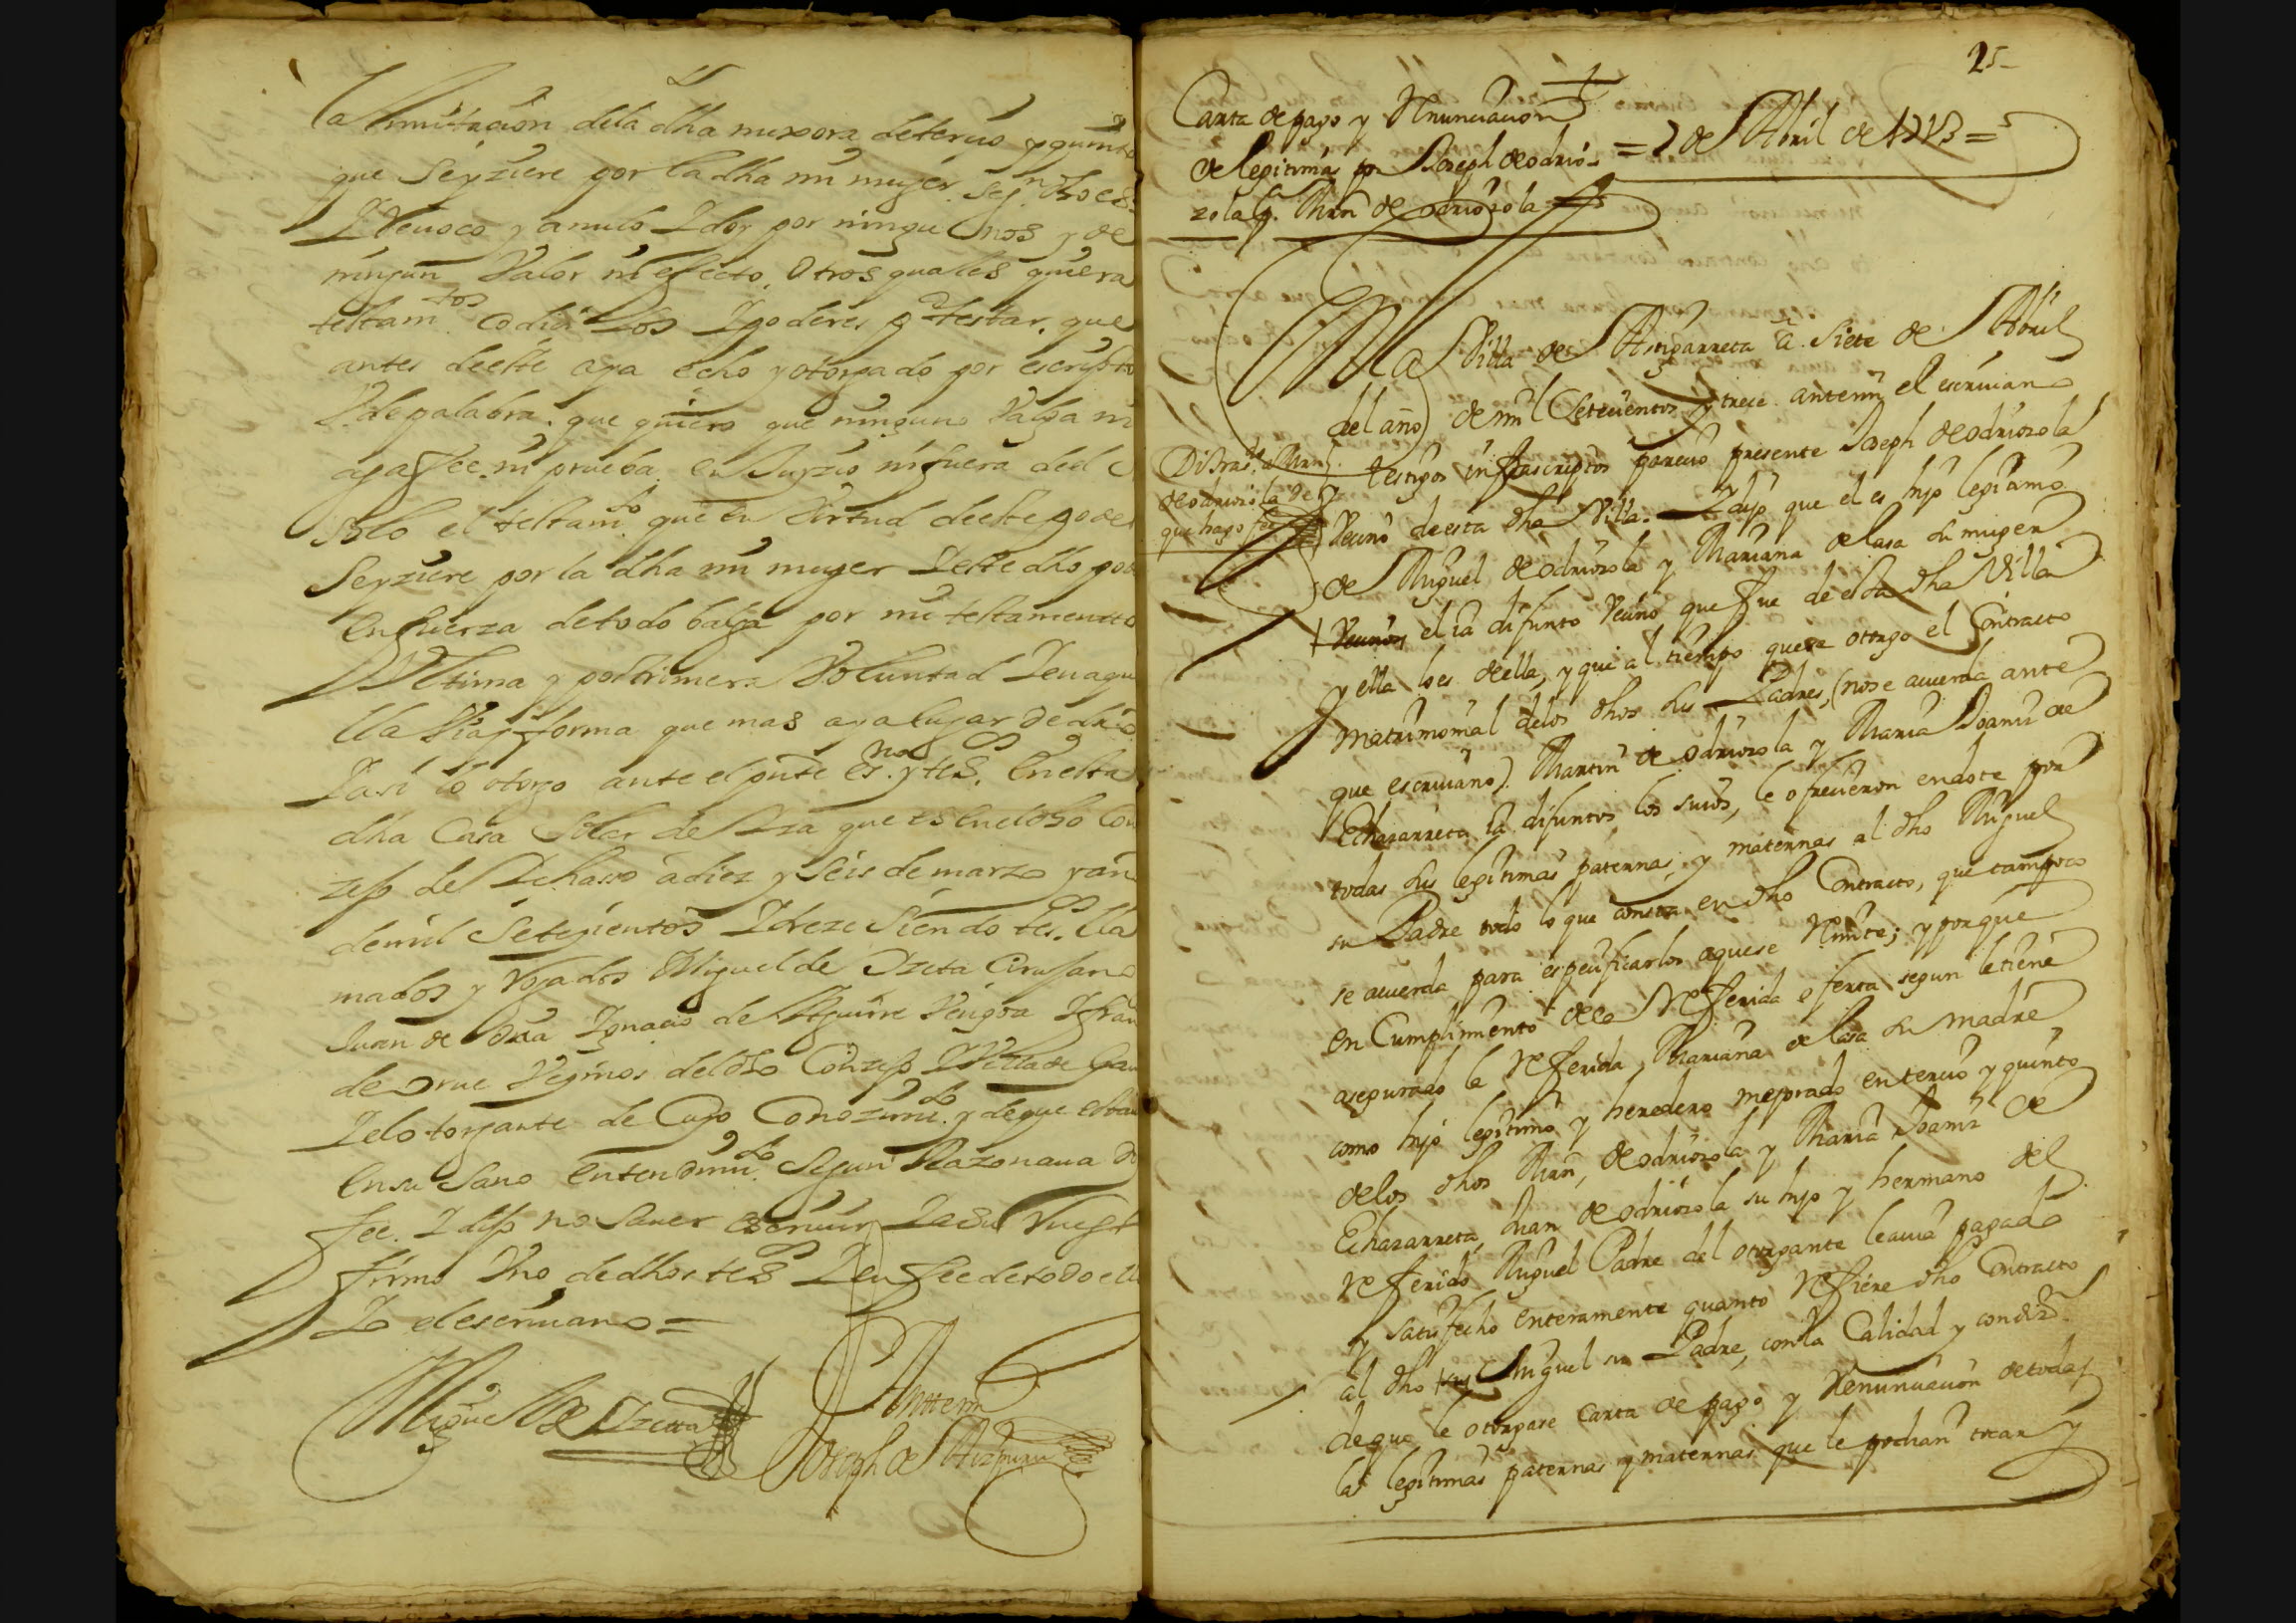 la limitacion dela dha mexora detercio y quinto
que seyziere por la dha mi mujer. Segn. dho es.
Y Reuoco y anulo Y doy por ningunos y de
ningun Valor ni efecto, otros quales quiera
testamtos. codicilos Y poderes pa testar. que
antes deeste aya echo y otorgado por escripto
Y de palabra. que quiero que ninguno Valga ni
aga fee. ni prueba en Juyzio ni fuera del
Solo el testamto. que en Virtud deeste poder
Seyziere por la dha mi muger Y este dho poder
En fuerza de todo balga por mi testamento
Vltima y postrimera Voluntad Y en aque
lla Via y forma que mas aya lugar de dro
Y asi lo otorgo ante el pnte esno. y tes. En esta
dha Casa Solar de que es en el dho Con
zejo de Ichasso a diez y seis de marzo y año
de mil Setezientos Y treze Siendo tes. lla
mados y Rogados Miguel de Ozeta Cirujano
Juan de Ignacio de Aguirre Vengoa Y fran
de orue Vezinos del dho Conzejo Y Villa de
Y el otorgante de Cuyo Conozimto. y de que estaua
En su Sano Entendimto. Segun Razonaua Doy
fee. Y dijo no Sauer escriuir Y a su Ruego
firmo Vno de dhos tes Y en fee de todo ello
Yo el escriuano =
Miguel de Ozetta
Ante mi
Joseph de Aizpuru
25
Carta de pago y Renunciacion
de legitimas pr. Joseph de odrio-
zola pa. Mrn de odriozola
= 7 de Abril de 1713 =
En la Villa de Astigarreta a. siete de Abril
del año de mil Setecientos y trece. antemi el escriuano
testigos infrascriptos parecio presente Joseph de odriozola
Di tras. a Mrn
de odriozola de
que hago fee
Vecino de esta dha Villa. Y dijo que el es hijo legitimo
de Miguel de odriozola y Mariana de lasa su muger
Vecinos, el ia difunto Vecino que fue de esta dha Villa
y ella lo es de ella, y que al tiempo que se otorgo el Contracto
matrimonial delos dhos sus Padres, (no se acuerda ante
que escriuano) Martin de odriozola y Maria Joaniz de
Echazarreta ia difuntos los suios, le ofrecieron en dote por
todas sus legitimas paternas, y maternas al dho Miguel
su Padre todo lo que consta en dho Contracto, que tampoco
se acuerda para especificarlos a que se Remite; y porque
en Cumplimento dela Referida oferta segun le tiene
asegurado la Referida Mariana de lasa su madre
como hijo legitimo y heredero mejorado en tercio y quinto
delos dhos Mrn, de odriozola y Maria Joaniz de
Echazarreta, Juan de odriozola su hijo y hermano del
Referido Miguel Padre del otorgante le auia pagado
y satisfecho enteramente quanto Refiere dho Contracto
al dho Miguel su Padre, con la Calidad y condizon.
de que le otorgase Carta de pago y Renunciacion de todas
las legitimas paternas y maternas que le podian tocar y